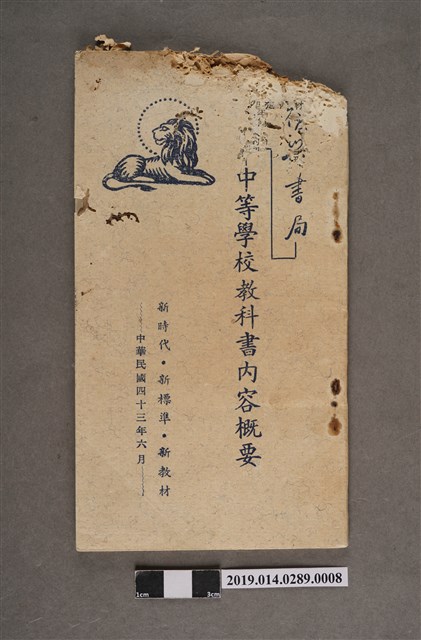 書局
中等學校教科書內容概要
新時代・新標準・新教材
中華民國四十三年六月
1cm
3cm
2019.014.0289.0008